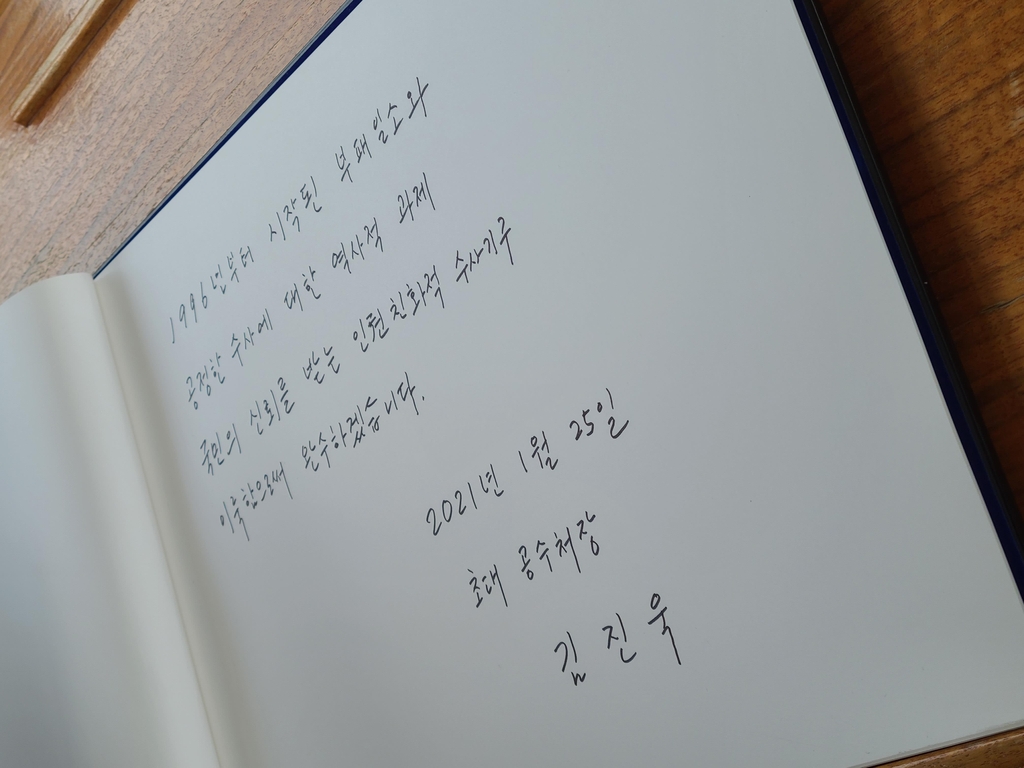 1996년부터 시작된 부패일소와
공정한 수사에 대한 역사적 과제
국민의 신뢰를 받는 인권친화적 수사기구
이룩함으로써 완수하겠습니다.
2021년 1월 25일
초대 공수처장
김진욱